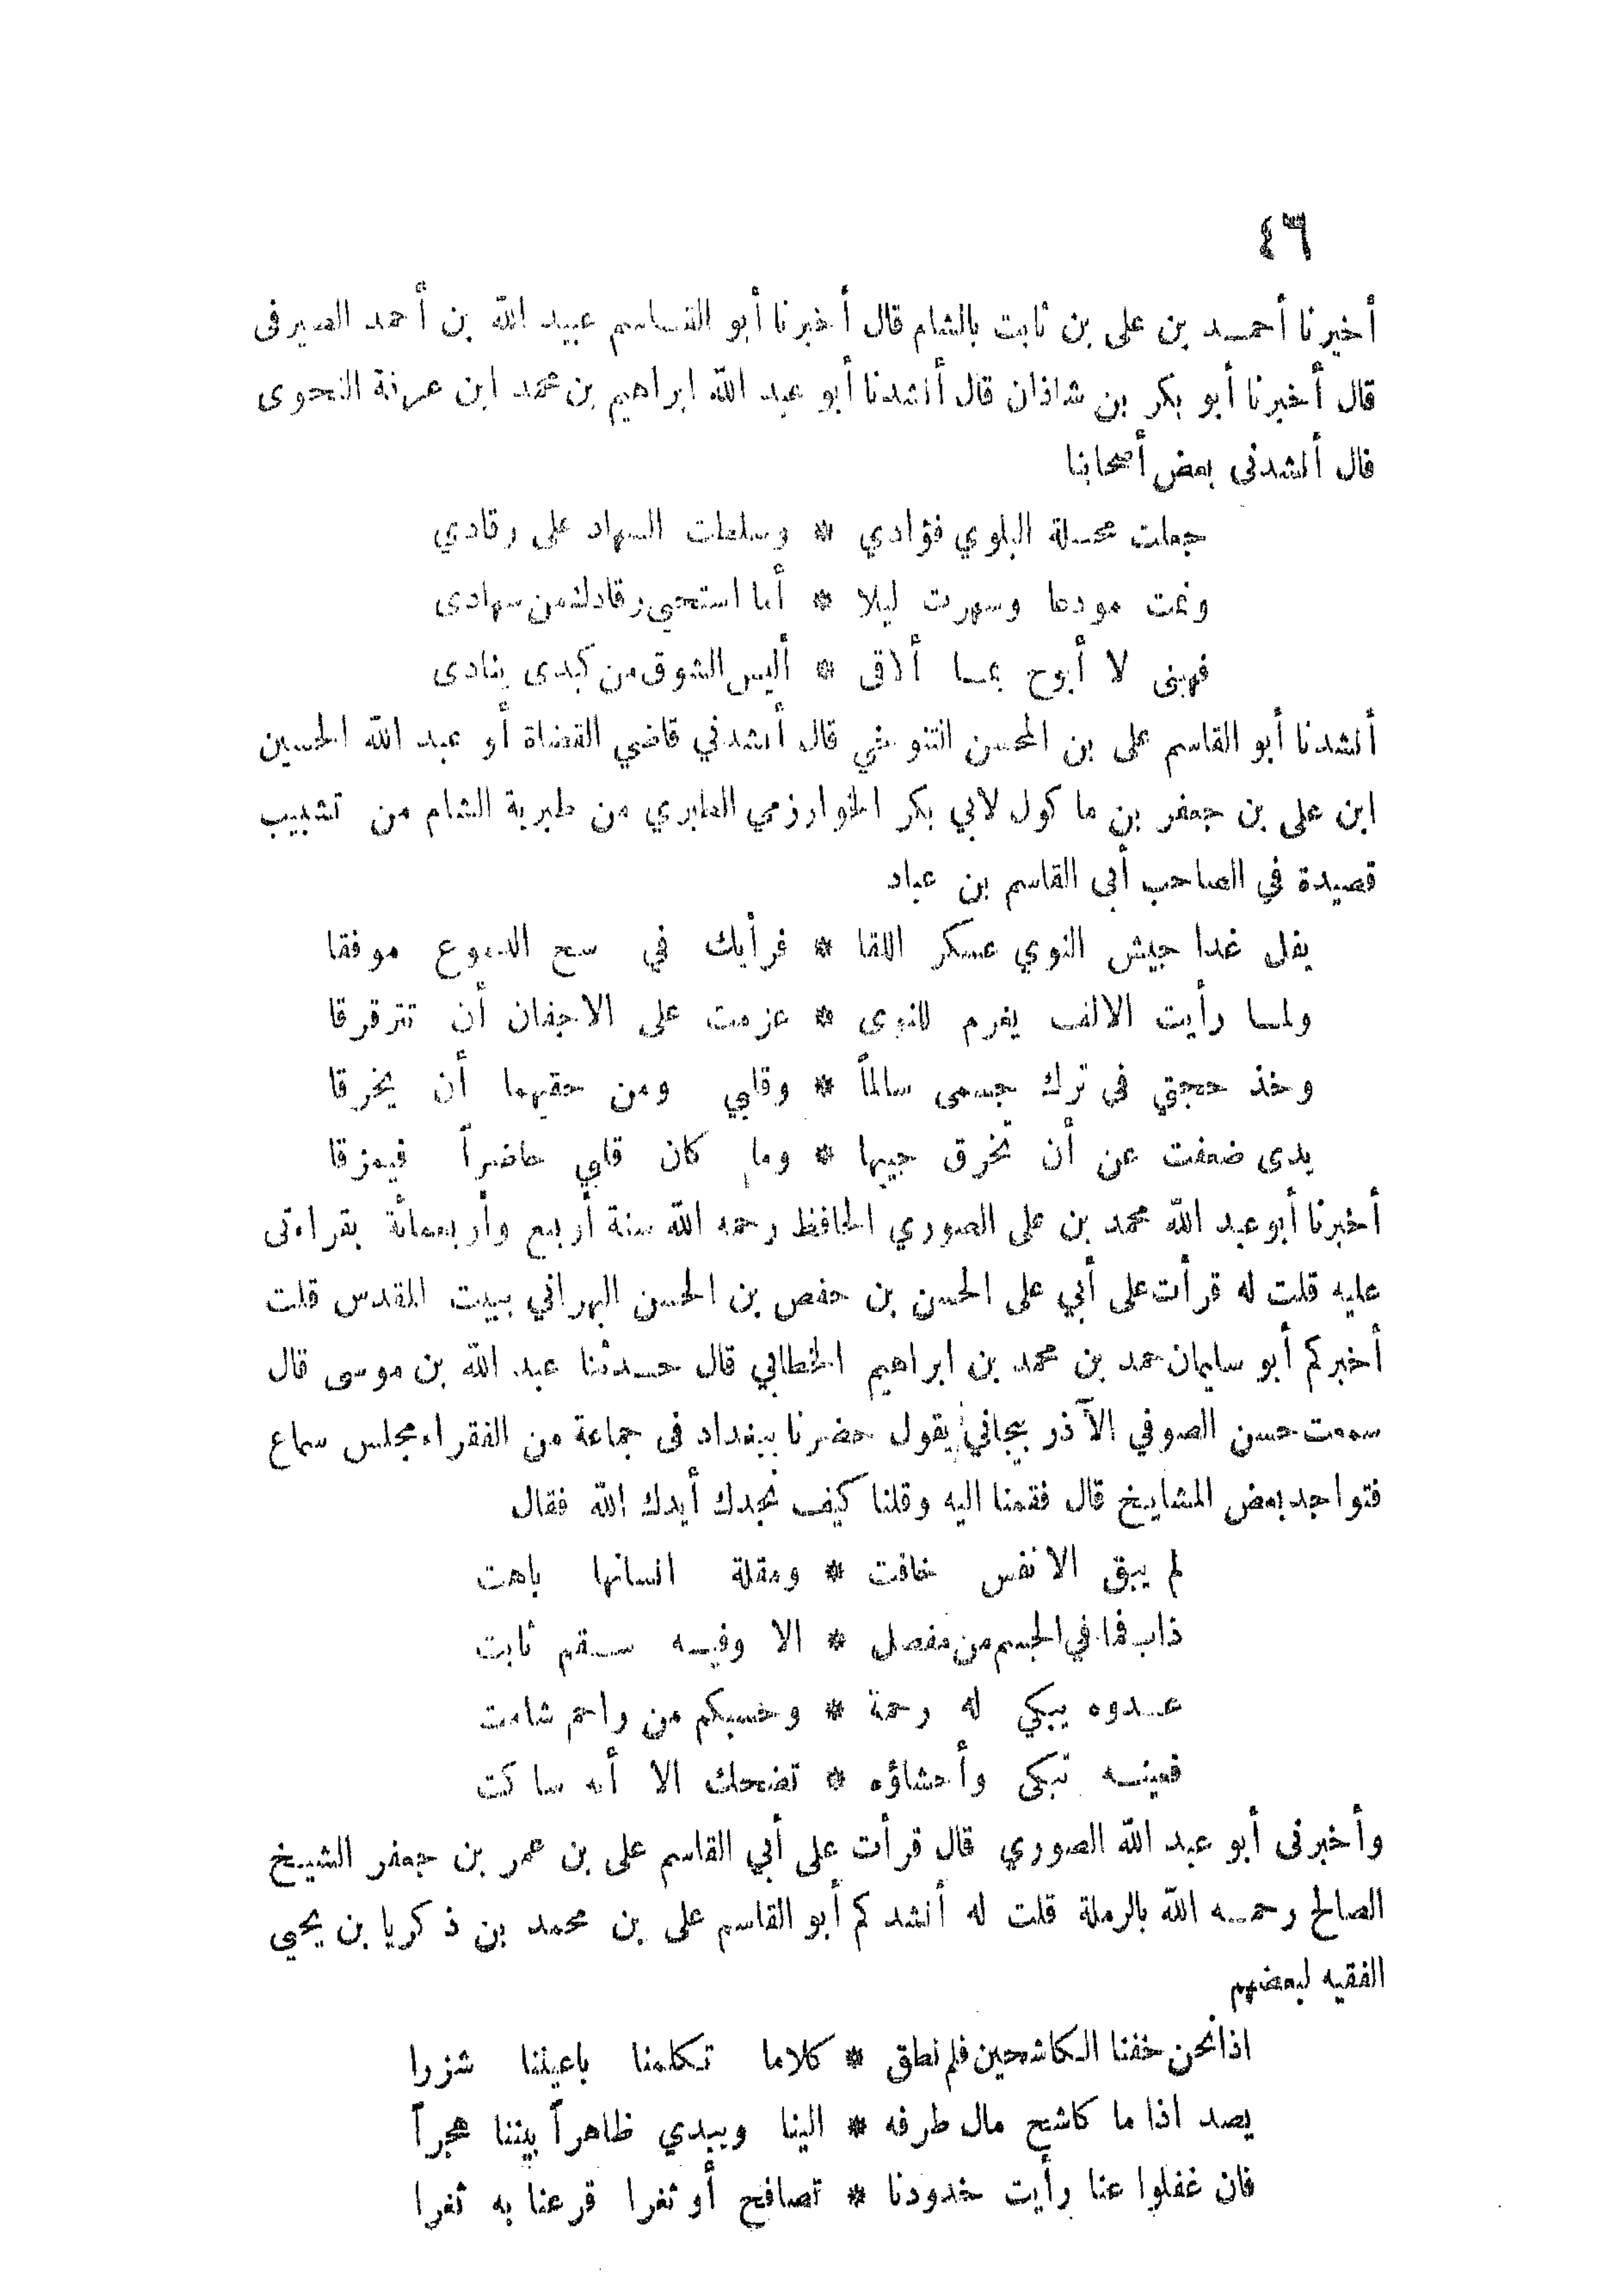 ٤٦
أخبرنا أحمد بن على بن ثابت بالشام قال أخبرنا أبو القاسم عبيد الله بن أحمد الصيرفى
قال أخبرنا أبو بكر بن شاذان قال أنشدنا أبو عبد الله ابراهيم بن محمد ابن عرفة النحوى
قال أنشدنى بعض أصحابنا
جعلت محلة البلوي فؤادي * وسلطت السهاد على رقادي
ونمت مودعا وسهرت ليلا * أما استحيى رقادك من سهادى
فهبنى لا أبوح بما ألاقى * أليس الشوق من كبدى ينادى
أنشدنا أبو القاسم على بن المحسن التنوخي قال أنشدني قاضي القضاة أبو عبد الله الحسين
ابن على بن جعفر بن ما كول لابي بكر الخوارزمي الطبري من طبرية الشام من تشبيب
قصيدة في الصاحب أبى القاسم بن عباد
يفل غدا جيش النوي عسكر اللقا * فرأيك في سح الدموع موفقا
ولما رأيت الالف يغرم للنوى * عزمت على الاجفان أن تترقرقا
وخذ حجتي في ترك جسمى سالماً * وقلبي ومن حقيهما أن يخرقا
يدى ضعفت عن أن تخرق جيبها * وما كان قلبي حاضراً فيمزقا
أخبرنا أبو عبد الله محمد بن على الصوري الحافظ رحمه الله سنة أربع وأربعمائة بقراءتى
عليه قلت له قرأت على أبي على الحسن بن حفص بن الحسن البهراني ببيت المقدس قلت
أخبركم أبو سليمان حمد بن محمد بن ابراهيم الخطابي قال حدثنا عبد الله بن موسى قال
سمعت حسن الصوفي الآذر بيجاني يقول حضرنا ببغداد فى جماعة من الفقراء مجلس سماع
فتواجد بعض المشايخ قال فقمنا اليه وقلنا كيف نجدك أيدك الله فقال
لم يبق الا نفس خافت * ومقلة انسانها باهت
ذاب فما في الجسم من مفصل * الا وفيه سقم ثابت
عدوه يبكي له رحمة * وحسبكم من راحم شامت
فعينه تبكى وأحشاؤه * تضحك الا أنه ساكت
وأخبرنى أبو عبد الله الصوري قال قرأت على أبي القاسم على بن عمر بن جعفر الشيخ
الصالح رحمه الله بالرملة قلت له أنشدكم أبو القاسم على بن محمد بن ذكريا بن يحيى
الفقيه لبعضهم
اذا نحن خفنا الكاشحين فلم نطق * كلاما تكلمنا باعيننا شزرا
يصد اذا ما كاشح مال طرفه * الينا ويبدي ظاهراً بيننا هجراً
فان غفلوا عنا رأيت خدودنا * تصافح أو ثغرا قرعنا به ثغرا